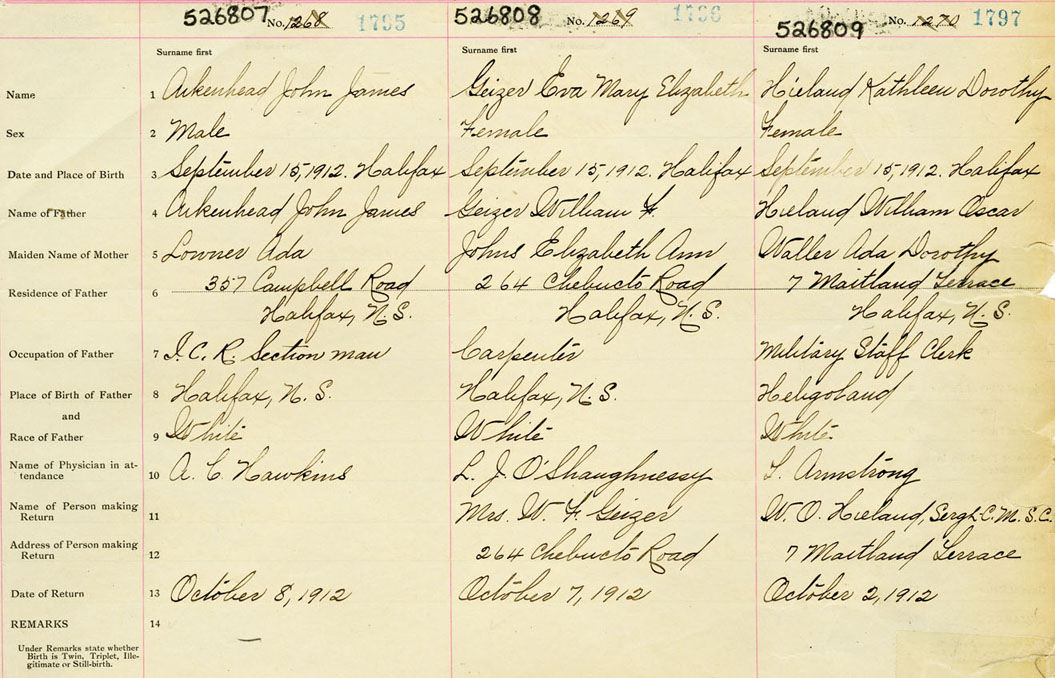 526807 No. 1268 1795 526808 No. 1269 1796 526809 No. 1270 1797
Surname first Surname first Surname first
Name 1 Aikenhead John James Geizer Eva Mary Elizabeth Hieland Kathleen Dorothy
Sex 2 Male Female Female
Date and Place of Birth 3 September 15, 1912. Halifax September 15, 1912. Halifax September 15, 1912. Halifax
Name of Father 4 Aikenhead John James Geizer William F. Hieland William Oscar
Maiden Name of Mother 5 Lowner Ada Johns Elizabeth Ann Waller Ada Dorothy
Residence of Father 6 357 Campbell Road 264 Chebucto Road 7 Maitland Terrace
Halifax, N.S. Halifax, N.S. Halifax, N.S.
Occupation of Father 7 I.C.R. Section man Carpenter Military Staff Clerk
Place of Birth of Father 8 Halifax, N.S. Halifax, N.S. Heligoland
and
Race of Father 9 White White White
Name of Physician in at-
tendance 10 A. C. Hawkins L. J. O'Shaughnessy Armstrong
Name of Person making
Return 11 Mrs. W. F. Geizer W. O. Hieland, Sergt. C.M.S.C.
Address of Person making
Return 12 264 Chebucto Road 7 Maitland Terrace
Date of Return 13 October 8, 1912 October 7, 1912 October 2, 1912
REMARKS 14
Under Remarks state whether
Birth is Twin, Triplet, Ille-
gitimate or Still-birth.